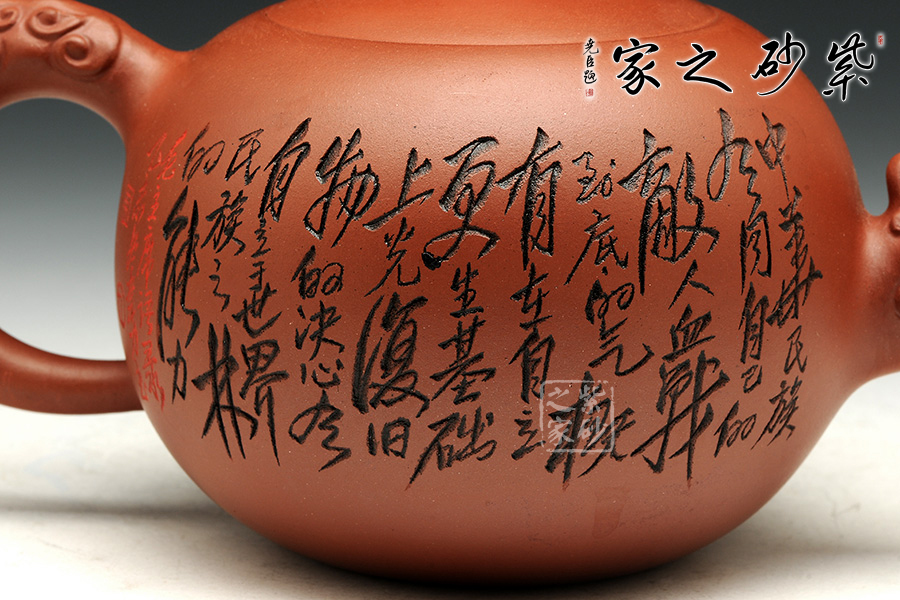 紫砂之家
尧臣题
中華民族
有同自己的
敵人血戰
到底的气概
有在自立
更生基础
上光復旧
物的决心有
自立于世界
民族之林
的能力
紫砂之家